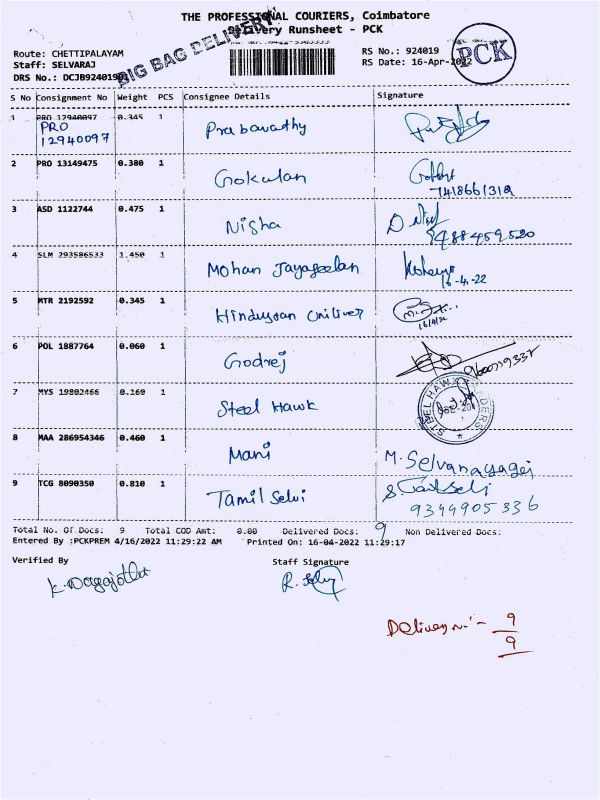 THE PROFESSIONAL COURIERS, Coimbatore
BIG BAG DELIVERY
Delivery Runsheet - PCK
PCK
Route: CHETTIPALAYAM
RS No.: 924019
Staff: SELVARAJ
RS Date: 16-Apr-2022
S No Consignment No Weight PCS Consignee Details Signature
1 PRO 12940097 0.345 1 Prabavathy
PRO
12940097
2 PRO 13149475 0.380 1 Gokulan
7418661312
3 ASD 1122744 0.475 1 Nisha
9488459520
4 SLM 293586533 1.450 1 Mohan Jayaseelan
16-4-22
5 MTR 2192592 0.345 1 Hindustan Uniliver
16/4/22
6 POL 1887764 0.060 1 Godrej
9600719337
7 MYS 19802466 0.160 1 Steel Hawk
8 MAA 286954346 0.460 1 Mani M. Selvanayagi
9 TCG 8090350 0.810 1 Tamil Selvi
9344905336
Total No. Of Docs: 9 Total COD Amt: 0.00 Delivered Docs: 9 Non Delivered Docs:
Entered By :PCKPREM 4/16/2022 11:29:22 AM Printed On: 16-04-2022 11:29:17
Verified By Staff Signature
9
9